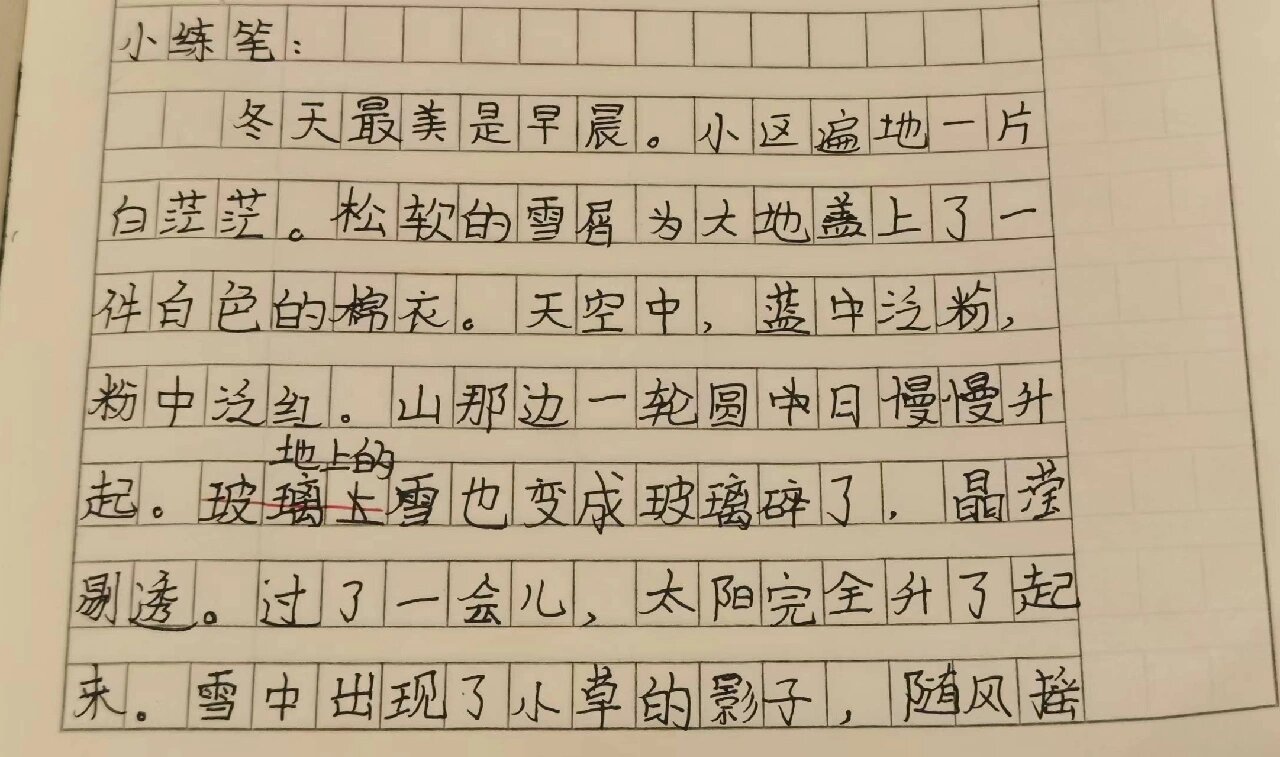 小练笔：
冬天最美是早晨。小区遍地一片
白茫茫。松软的雪屑为大地盖上了一
件白色的棉衣。天空中，蓝中泛粉，
粉中泛红。山那边一轮圆中日慢慢升
地上的
起。玻璃上雪也变成玻璃碎了，晶莹
剔透。过了一会儿，太阳完全升了起
来。雪中出现了小草的影子，随风摇